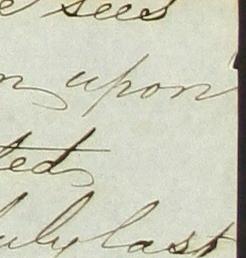 e sees
n upon
ted
July last